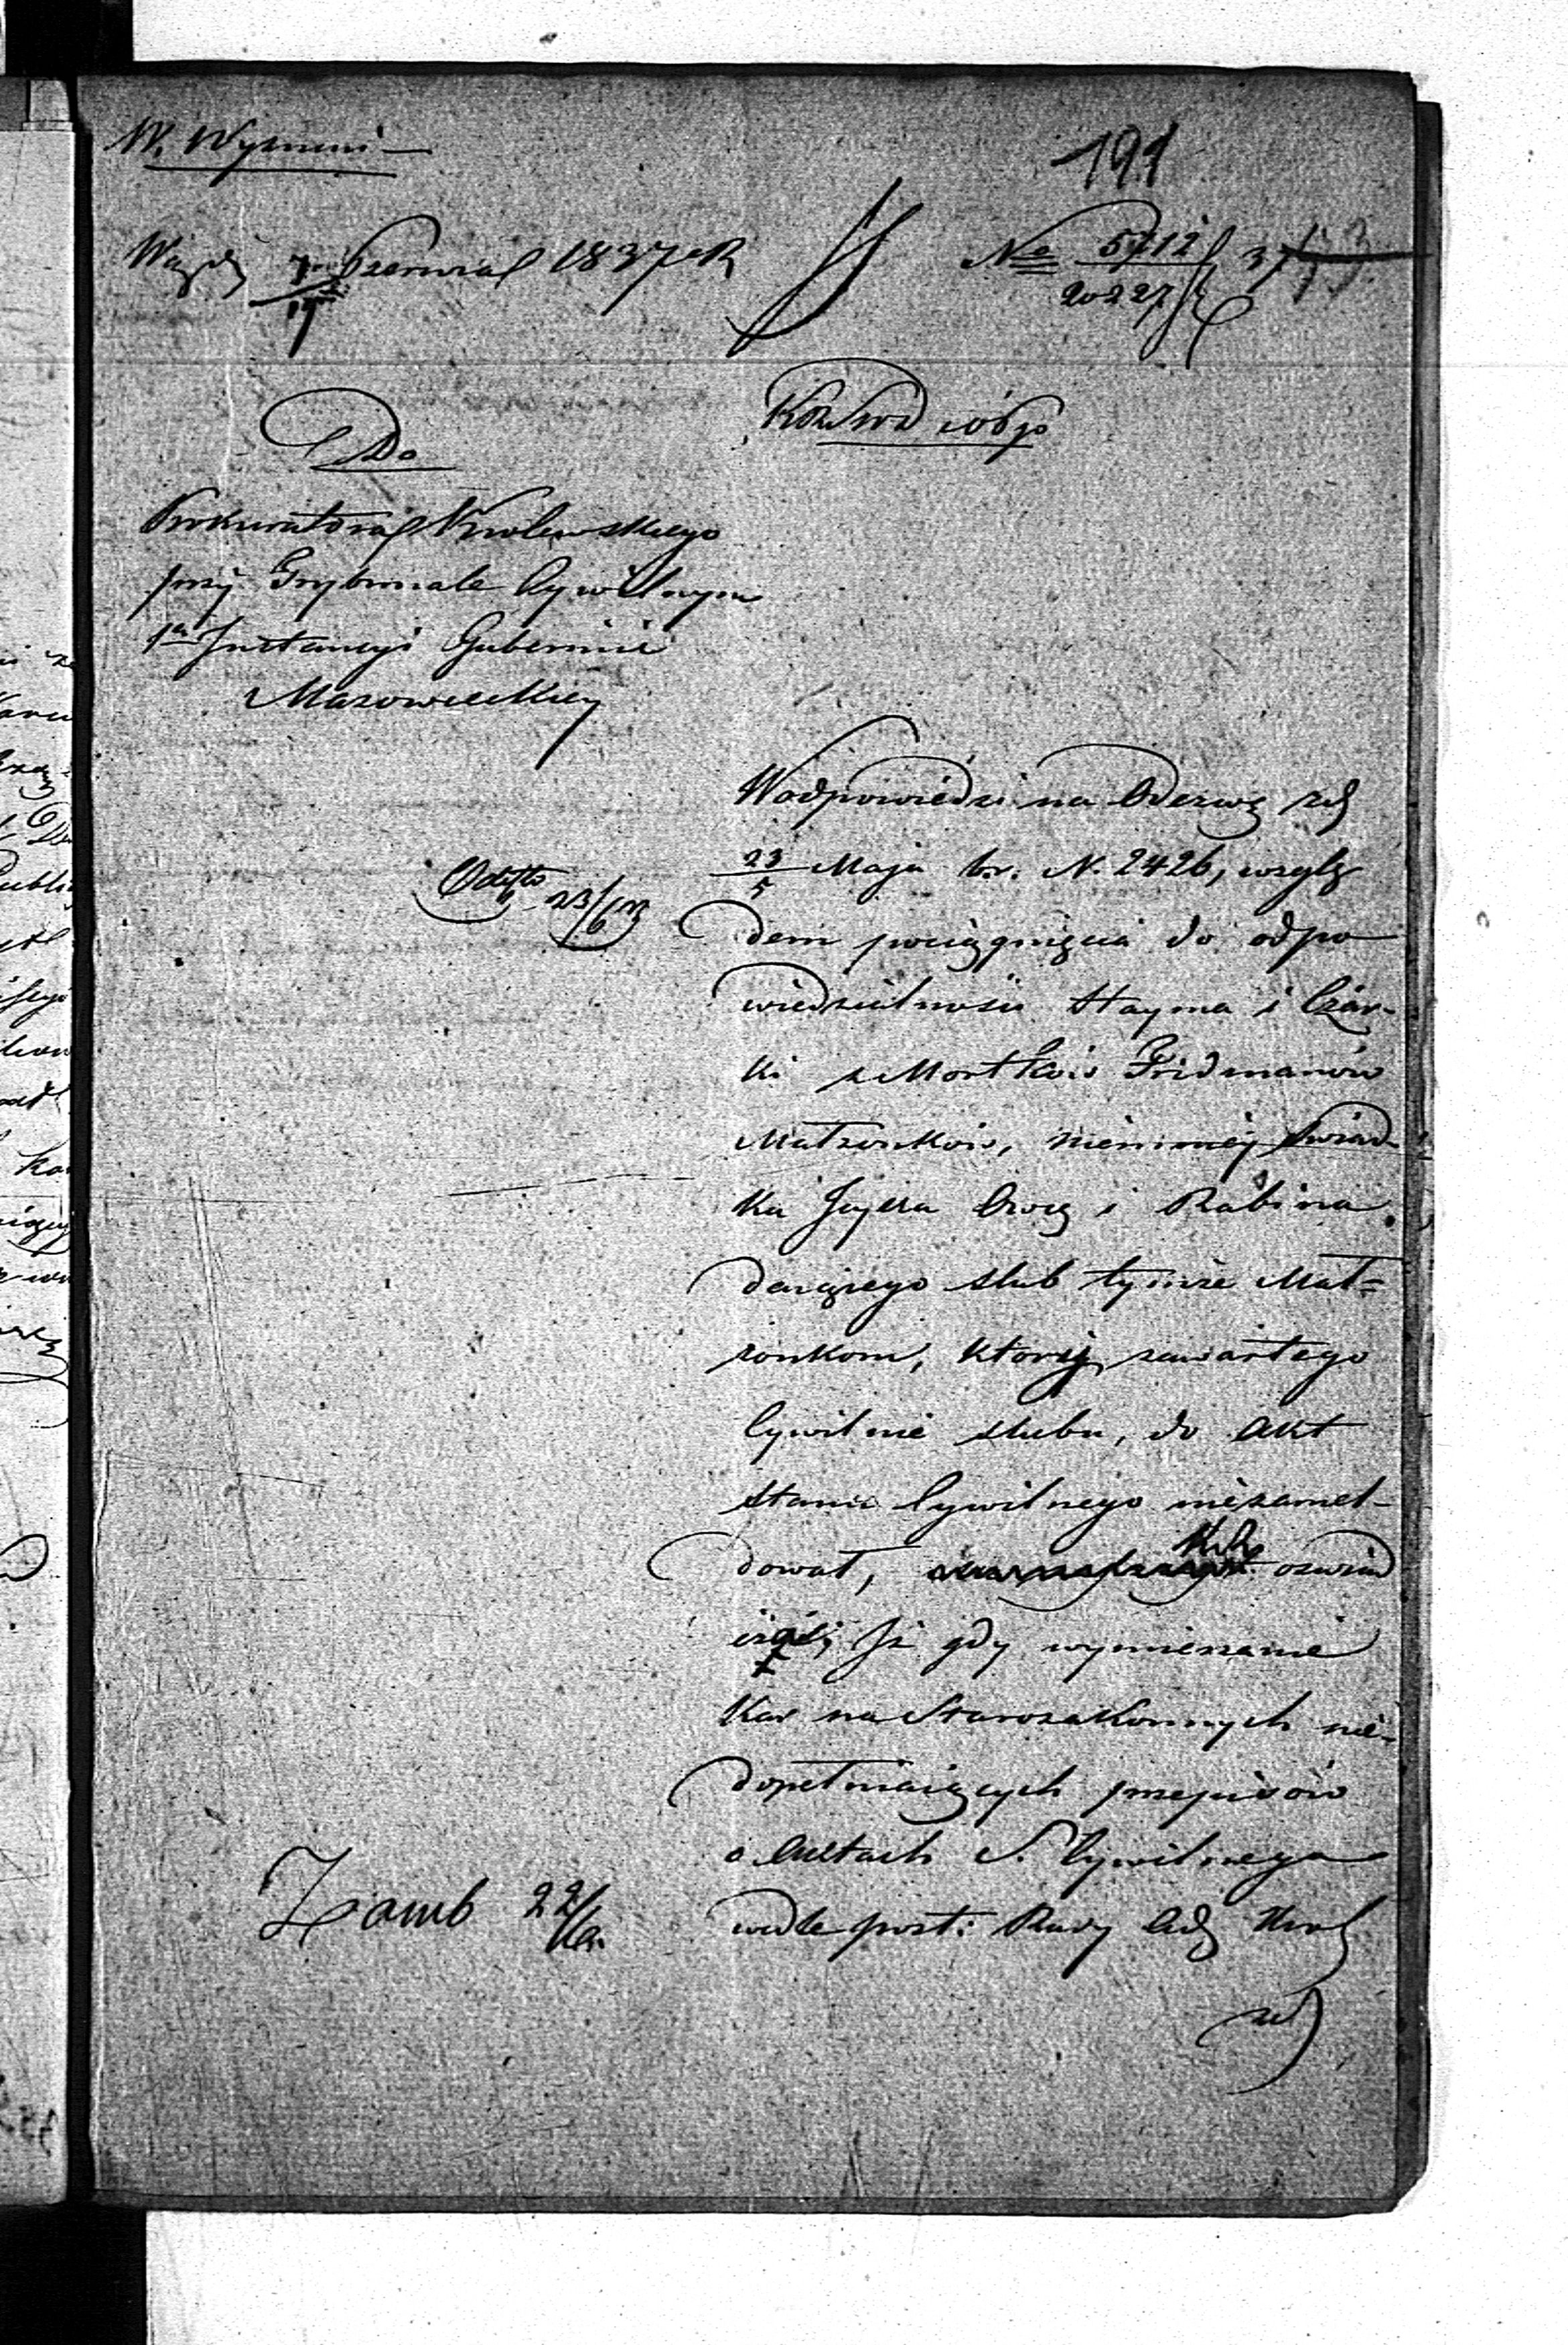 W. Wyznań
191
7/19 Czerwca 1837 R
No 5712/20227
Do
Prokuratora Krolewskiego
przy Trybunale Cywilnym
1ej Instancyi Gubernii
Mazowieckiey
W odpowiedzi na Odezwę z d
23/5 Maja b.r. N. 2426, wzglę
dem pociągnięcia do odpo
wiedzialnosci Hayma i Czar-
ki z Mortków Fridmanów
Małzonków, niemniey swiad-
ka i Rabina
daiącego slub tymże Mał=
zonkom, który zawartego
Cywilnie slubu, do Akt
Stanu Cywilnego niezamel-
dował, oswiad
iż gdy wymierzanie
Kar na Starozakonnych nie-
dopełniaiących przepisów
o Aktach S. Cywilnego
wedle post: Rady Adm Król
z d
23/6
22/6